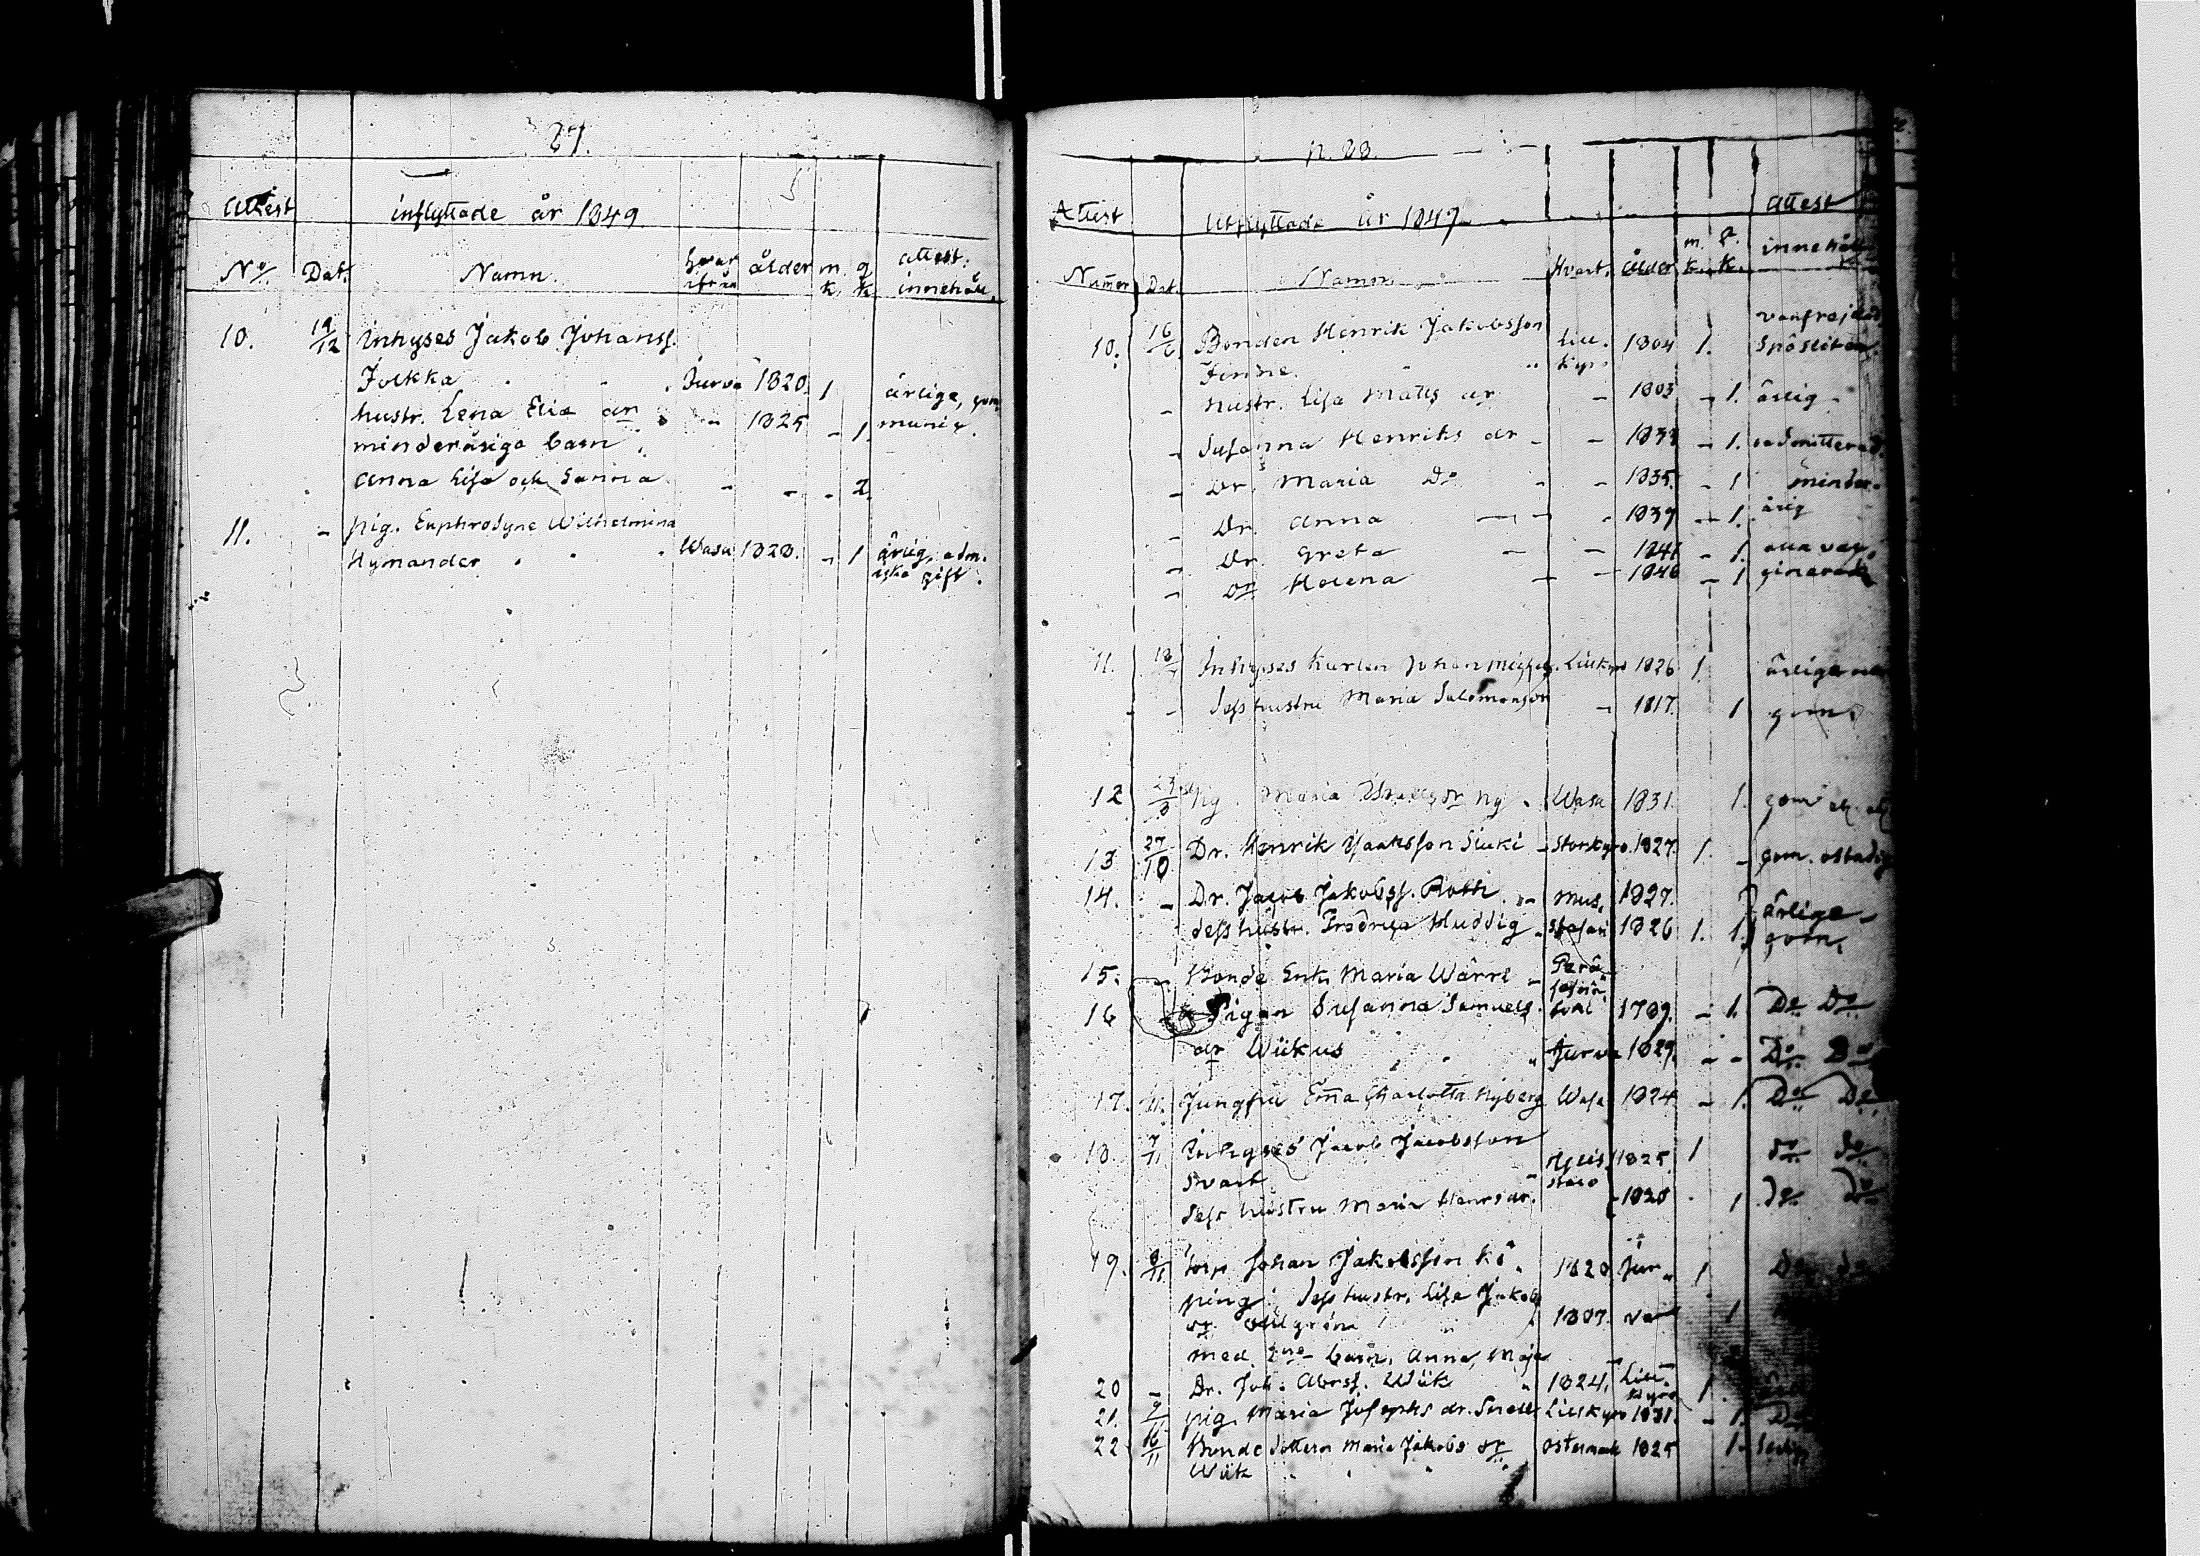 27.
Attest inflyttade år 1849
No Dat. Namn. hvar ifrån ålder m. k. q. k. attest: innehåll.
10. 19/12 Inhyses Jakob Johanss.
Jolkka Jurva 1820. 1 ärlige, gom
hustr. Lena Elia dr - 1825 - 1. munic.
minderåriga barn
Anna Lisa och Sanna - - - 2.
11. - pig. Euphrosyne Wilhelmina
Hymander Wasa 1828. - 1 ärlig, adm.
icke gift.
p. 28.
Attest Utflyttade år 1847 attest
Numer Dat. Namn Hvart. ålder m. k. q. k. innehåll
10. 16/6 Bonden Henrik Jakobsson Lill- 1804 1. vanfrejdad
kyro Spöсliten
Hustr. Lisa Matts dr - 1803 - 1. ärlig -
- Susanna Henriks dr - - 1833 - 1. admitterad
- Dr. Maria Do - - 1835. - 1 minder-
- Dr. Anna - - - 1839 - 1. årig
- Dr. Greta - - 1841 - 1.
- Dr Helena - - 1846 - 1
11. 18/7 Inhyses Karlen Johan Lillkyro 1826 1. ärliga
- - Dess hustru Maria Salomonsdr - 1817. 1 gom.
12 Pig. Maria dr Ny Wasa 1831. 1. gom
13 27/10 Dr. Henrik Isaaksson Siuki - Storkyro. 1827. 1. - gom. ostadig
14. - Dr. Jacob Jakobss. Roth - Mus. 1827. ärlige -
dess hustr. Fredrika Huddig Stasari 1826 1. 1. gom.
15. - Bonde Enk. Maria Wärri - Perä-
16 Pigan Susanna Samuels 1789. - 1. Do Do
dr Wiikus Jurva 1829. - - Do Do
17. 11. Jungfru Emma Charlotta Nyberg Wasa 1824 - 1. Do Do
18. 7/11 Inhyses Jacob Jacobsson
Svart 1825. 1 do do
dess hustru Maria Henrsdr. - 1828 . 1 do do
19. 8/11 torp Johan Jakobsson Kö- 1820 Jur- 1 Do do
ping. Dess hustr. Lisa Jakobs
dr 1807. va 1
med 2ne barn, Anna, Maja
20 - Dr. Joh. Abrss. Wiik 1824. Lill-
kyro 1.
21. 9/11 pig. Maria Josephs dr. Snell Lillkyro 1831. - 1. Do
22 16/11 Bonde dottern Maria Jakobs dr Östermark 1825 1.
Wiik